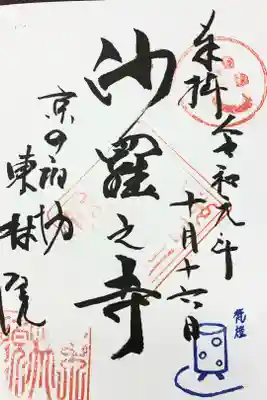 奉拝 令和元年
十月十六日
沙羅之寺
京の宿坊
東林院
梵燈